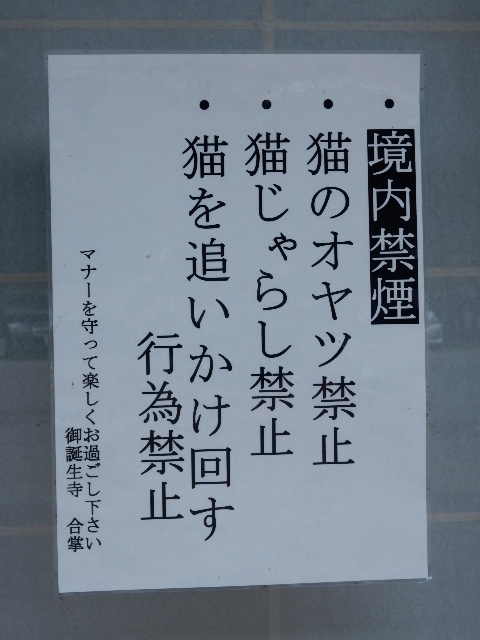 ・境内禁煙
・猫のオヤツ禁止
・猫じゃらし禁止
・猫を追いかけ回す
行為禁止
マナーを守って楽しくお過ごし下さい
御誕生寺　合掌